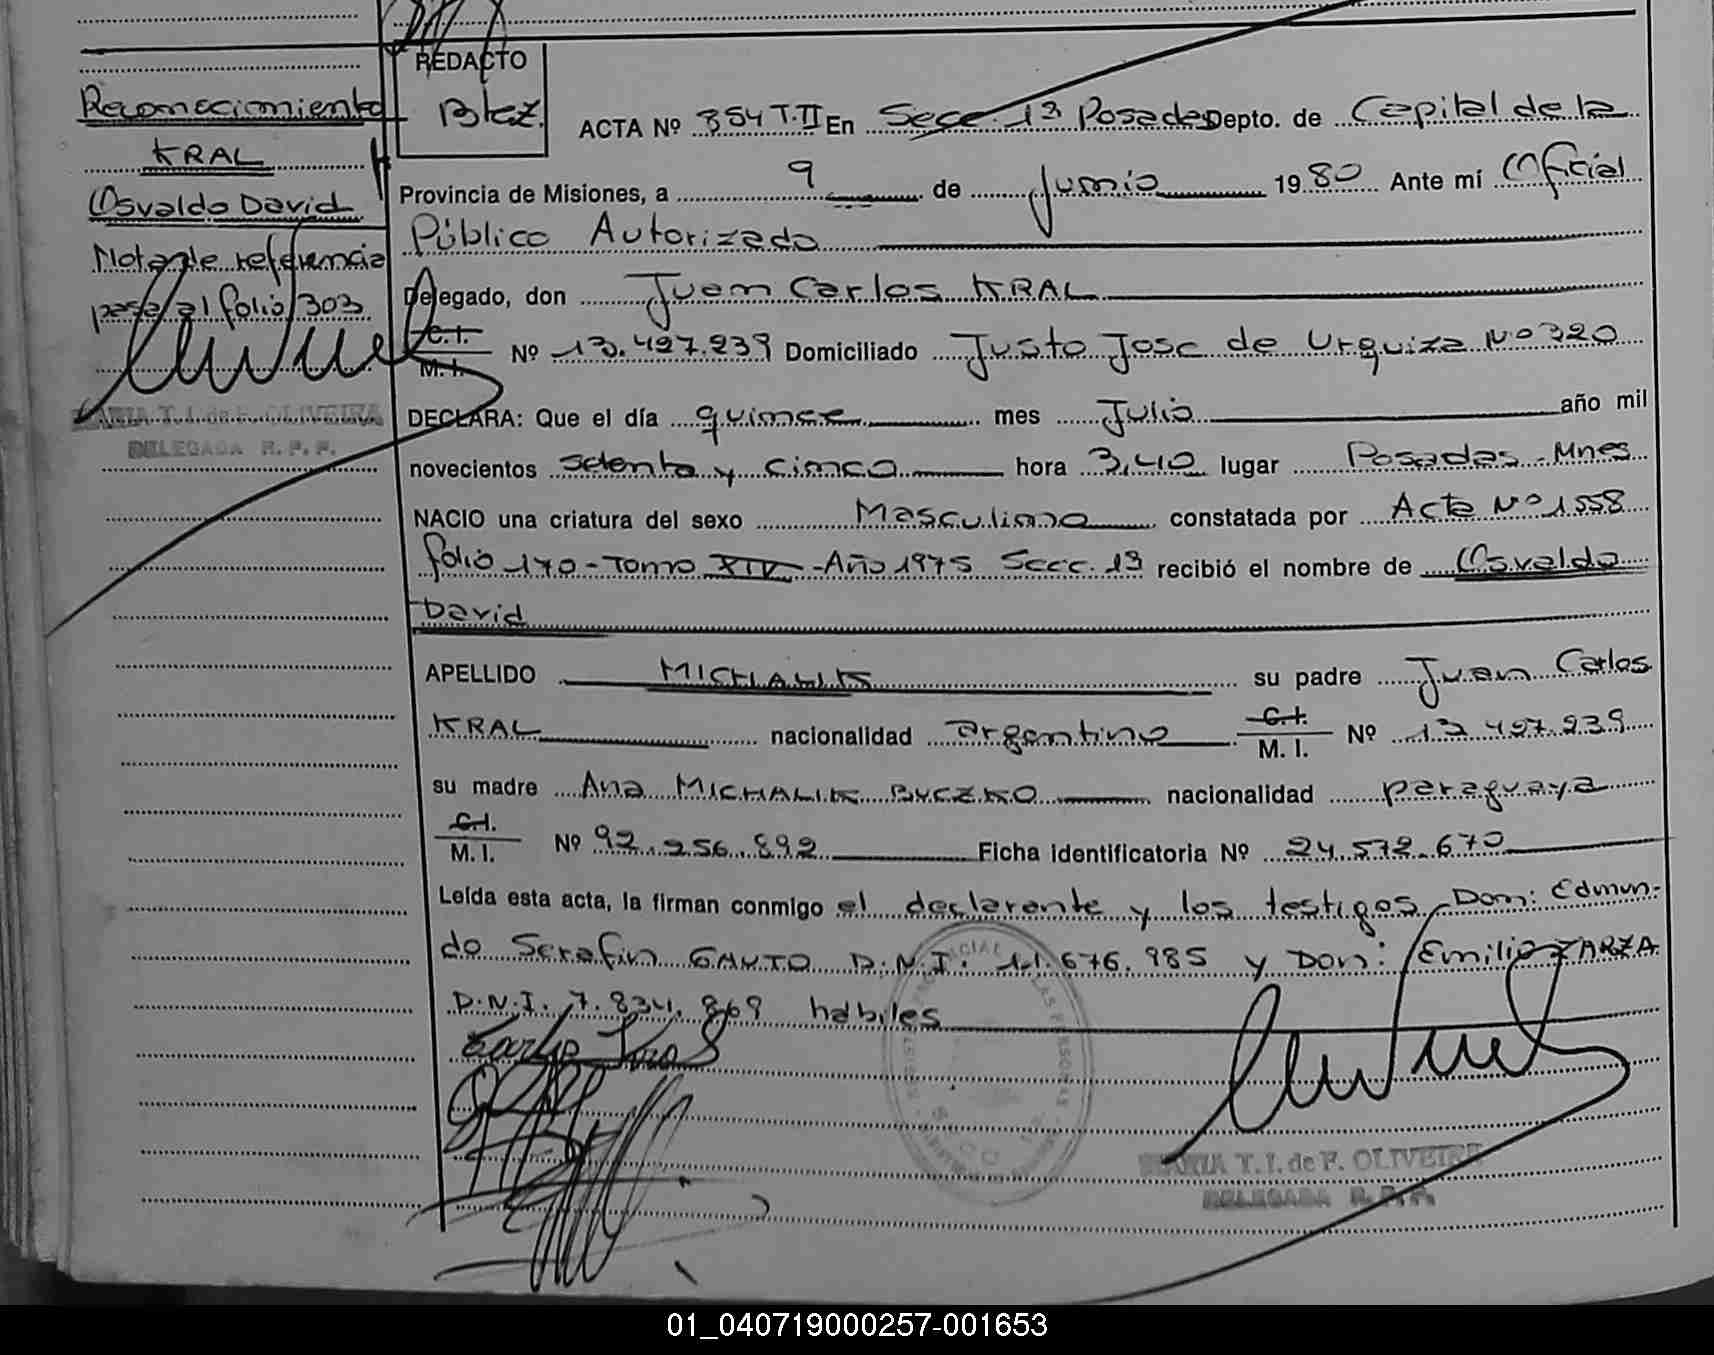 Reconocimiento
KRAL
Osvaldo David
Nota de referencia
pasa al folio 303
MARIA T. I. de F. OLIVEIRA
DELEGADA R. P. P.
REDACTO
Blaz.
ACTA Nº 354 T.II En Secc. 1ª Posadas Depto. de Capital de la
Provincia de Misiones, a 9 de Junio 1980 Ante mí Oficial
Público Autorizado
Delegado, don Juan Carlos KRAL
C.I. M.I. Nº 13.427.239 Domiciliado Justo José de Urquiza Nº 320
DECLARA: Que el día quince mes Julio año mil
novecientos setenta y cinco hora 3,40 lugar Posadas - Mnes
NACIO una criatura del sexo Masculino constatada por Acta Nº 1558
folio 170 - Tomo XIV - Año 1975 Secc. 1ª recibió el nombre de Osvaldo
David
APELLIDO MICHALIK su padre Juan Carlos
KRAL nacionalidad argentino C.I. M.I. Nº 13.427.239
su madre Ana MICHALIK BUCZKO nacionalidad paraguaya
C.I. M.I. Nº 92.256.892 Ficha Identificatoria Nº 24.572.670
Leída esta acta, la firman conmigo el declarante y los testigos Don: Edmun-
do Serafin GAUTO D.N.I. 11.676.985 y Don: Emilio ZARZA
D.N.I. 7.834.869 hábiles
MARIA T. I. de F. OLIVEIRA
DELEGADA R. P. P.
01_040719000257-001653